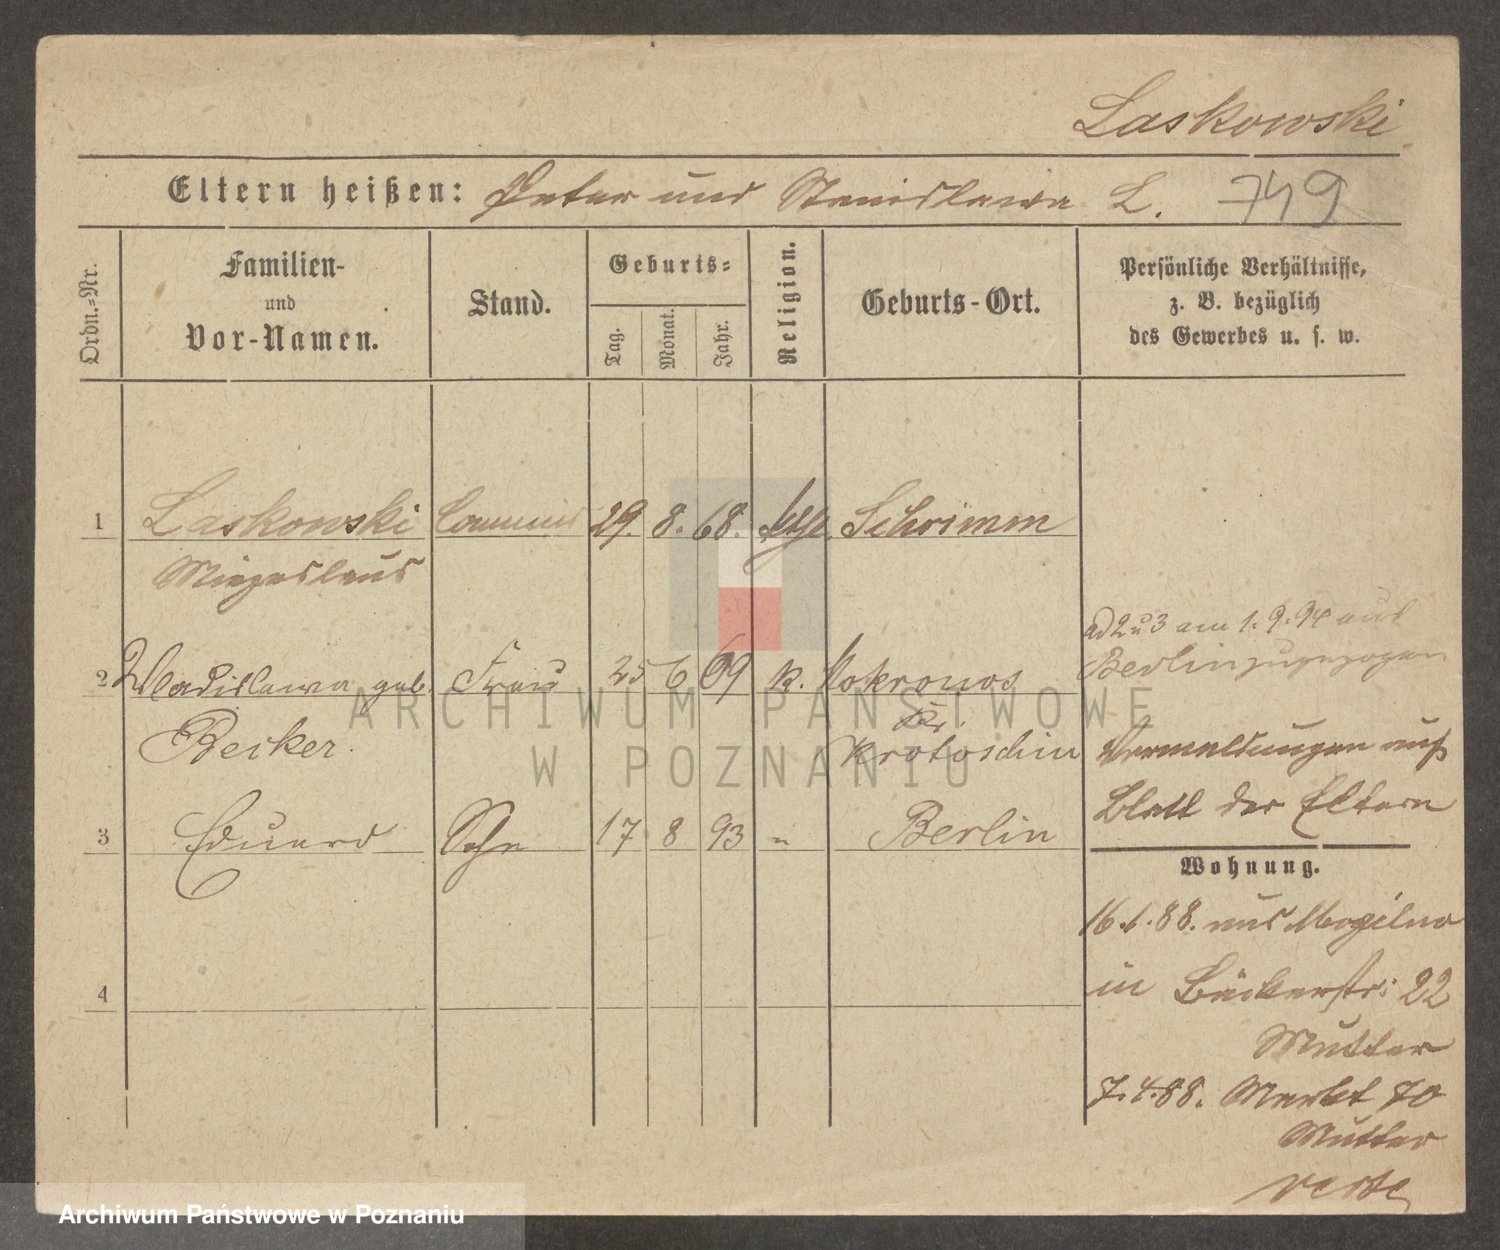 Laskowski
Eltern heißen: Peter und Stanislawa L. 749
Ordn.=Nr.
Familien-
und
Vor-Namen.
Stand.
Geburts=
Tag.
Monat.
Jahr.
Religion.
Geburts-Ort.
Persönliche Verhältnisse,
z. B. bezüglich
des Gewerbes u. s. w.
1 Laskowski Commis 29. 8. 68. Schrimm
Miezeslaus
ad 2 u 3 am 1. 9. 94 aus
Berlin zugezogen
2 Wladislawa geb. Frau 25 6 69 k. Mokronos
Kr.
Becker Krotoschin
Vermeldungen auf
Blatt der Eltern
3 Eduard Sohn 17 8 93 " Berlin
Wohnung.
16.1.88. aus Mogilno
4 in Bäckerstr: 22
Mutter
7.4.88. Markt 70
Mutter
verte
ARCHIWUM PAŃSTWOWE
W POZNANIU
Archiwum Państwowe w Poznaniu